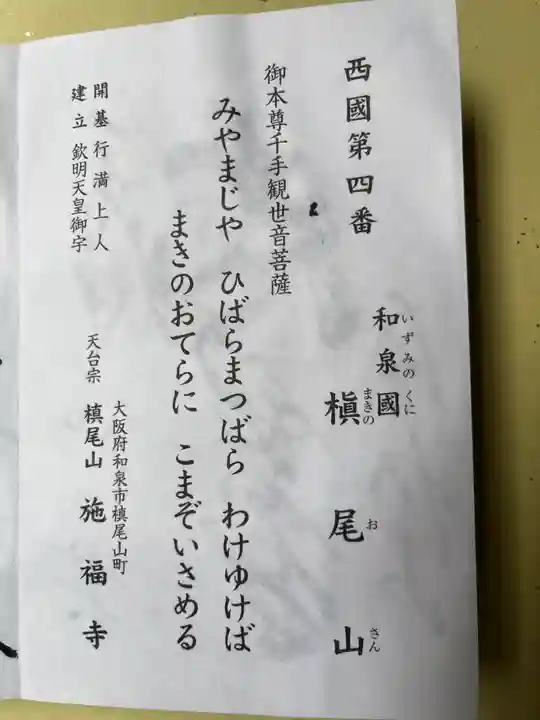 西國第四番
和泉國
いずみのくに
槇尾山
まきのおさん
御本尊千手観世音菩薩
みやまじや ひばらまつばら わけゆけば
まきのおてらに こまぞいさめる
開基行満上人
建立欽明天皇御宇
大阪府和泉市槙尾山町
天台宗 槙尾山 施福寺